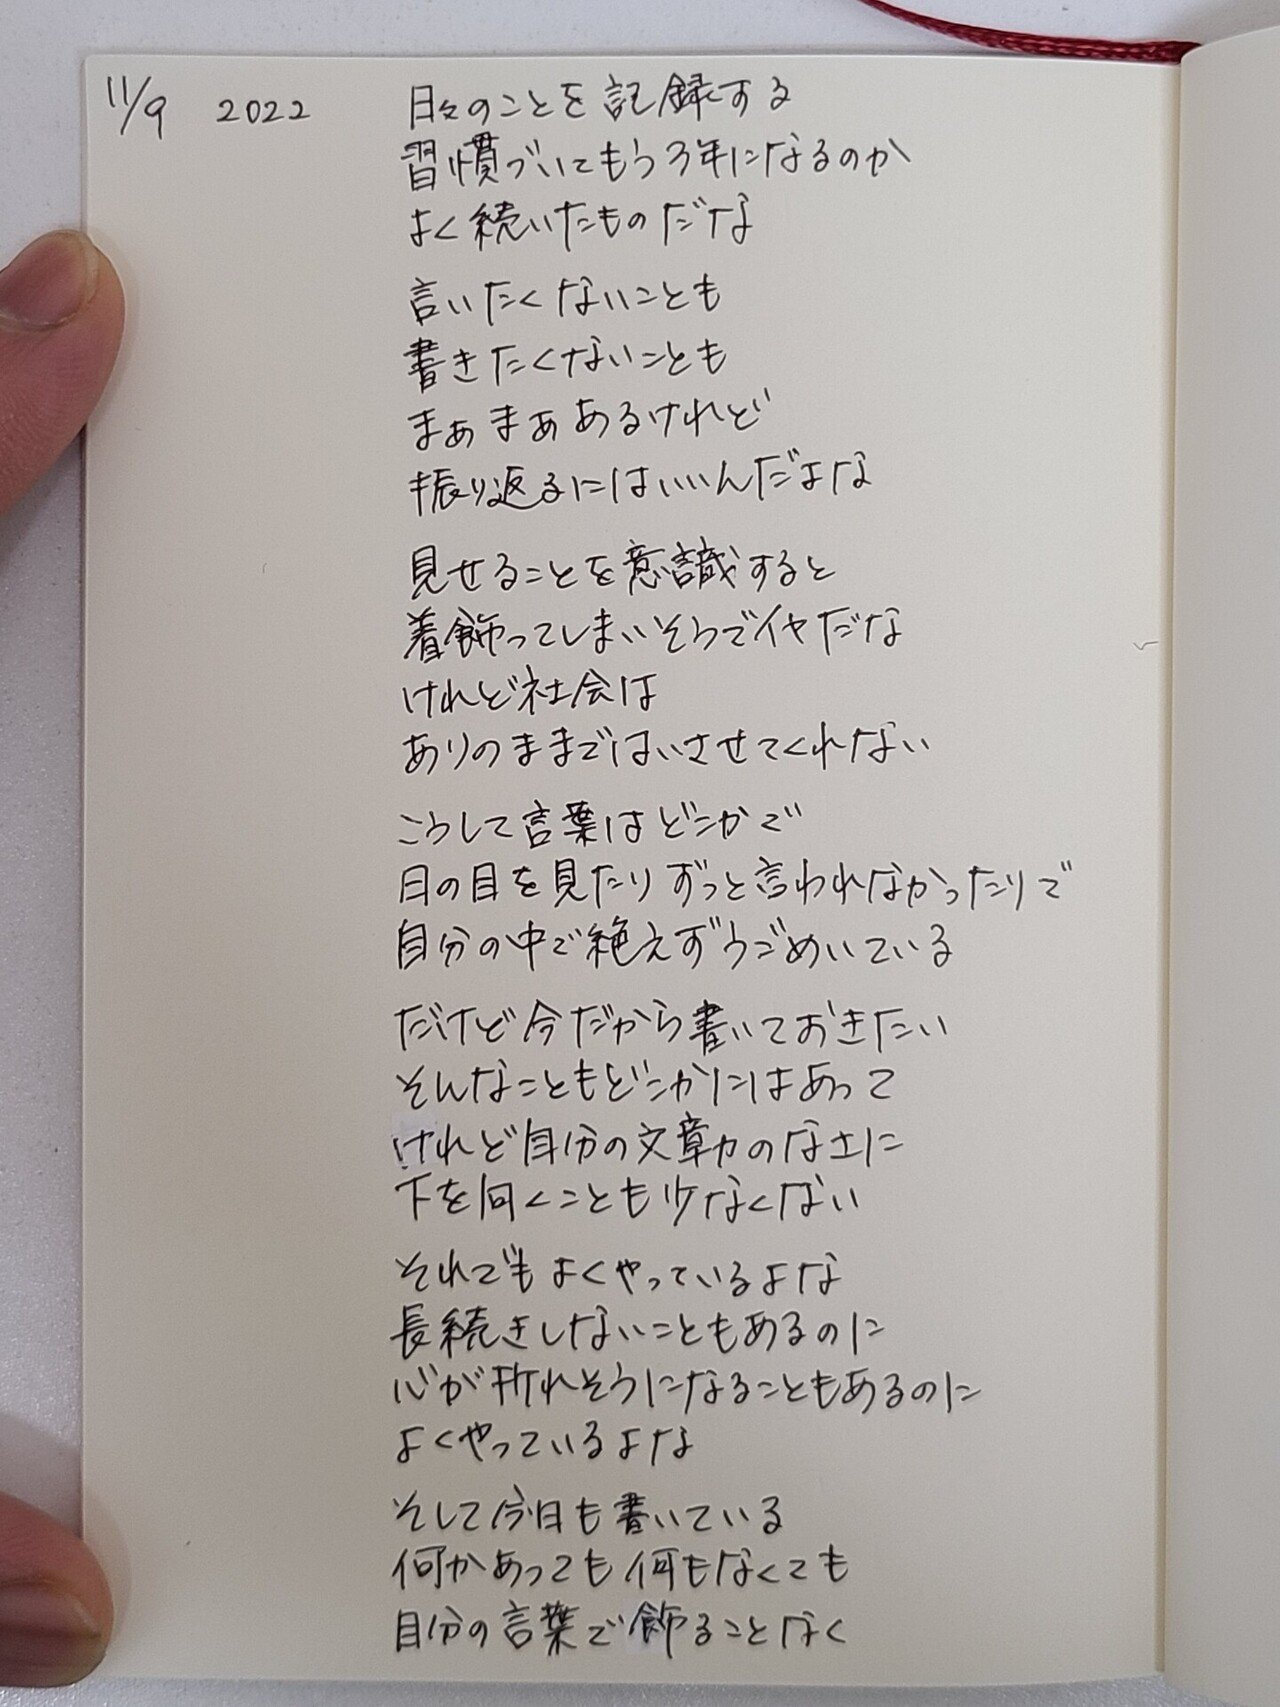 11/9 2022
日々のことを記録する
習慣づいてもう3年になるのか
よく続いたものだな
言いたくないことも
書きたくないことも
まぁまぁあるけれど
振り返るにはいいんだよな
見せることを意識すると
着飾ってしまいそうでイヤだな
けれど社会は
ありのままではいさせてくれない
こうして言葉はどこかで
日の目を見たりずっと言われなかったりで
自分の中で絶えずうごめいている
だけど今だから書いておきたい
そんなこともどこかにはあって
けれど自分の文章力のなさに
下を向くことも少なくない
それでもよくやっているよな
長続きしないこともあるのに
心が折れそうになることもあるのに
よくやっているよな
そして今日も書いている
何かあっても何もなくても
自分の言葉で飾ることなく